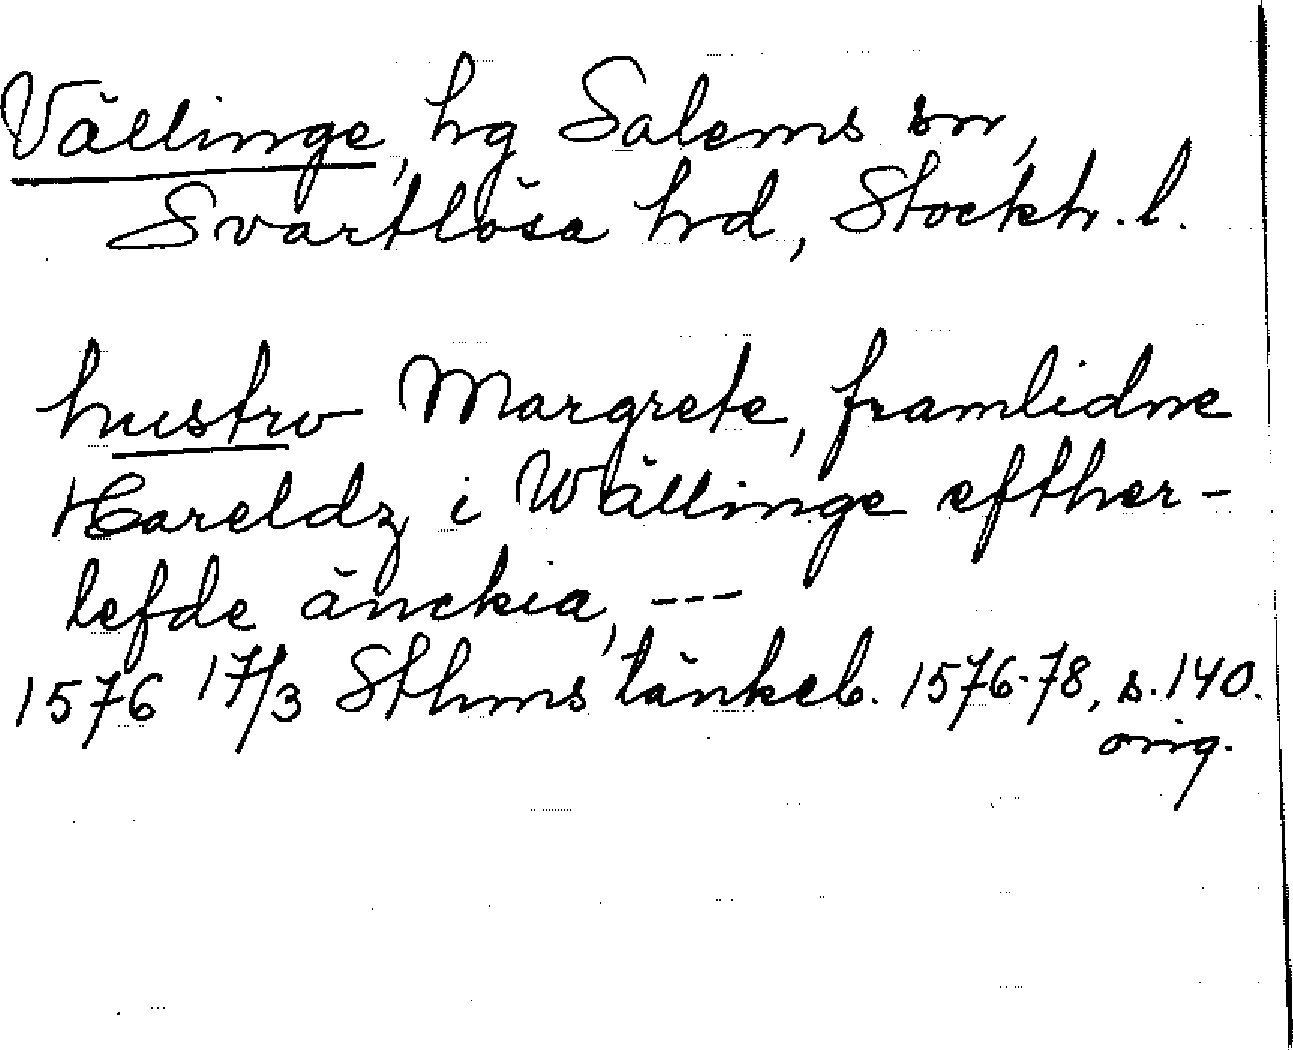 Vällinge, hg Salems sn,
Svartlösa hd, Stockh. l.
hustrv Margrete, framlidne
Hareldz i Wällinge efther-
lefde änckia, ---
1576 17/3 Sthms tänkeb. 1576-78, s. 140.
orig.